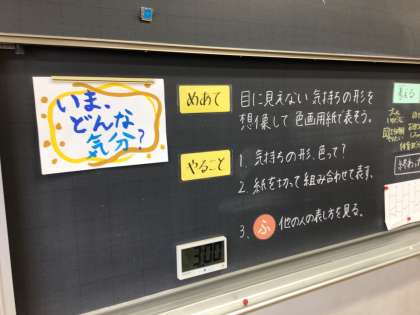 いま、
どんな
気分?
めあて
目に見えない気持ちの形を
想像して色画用紙で表そう。
やること
1. 気持ちの形、色って?
2. 紙を切って組み合わせて表す。
3. ふ 他の人の表し方を見る。
3:00